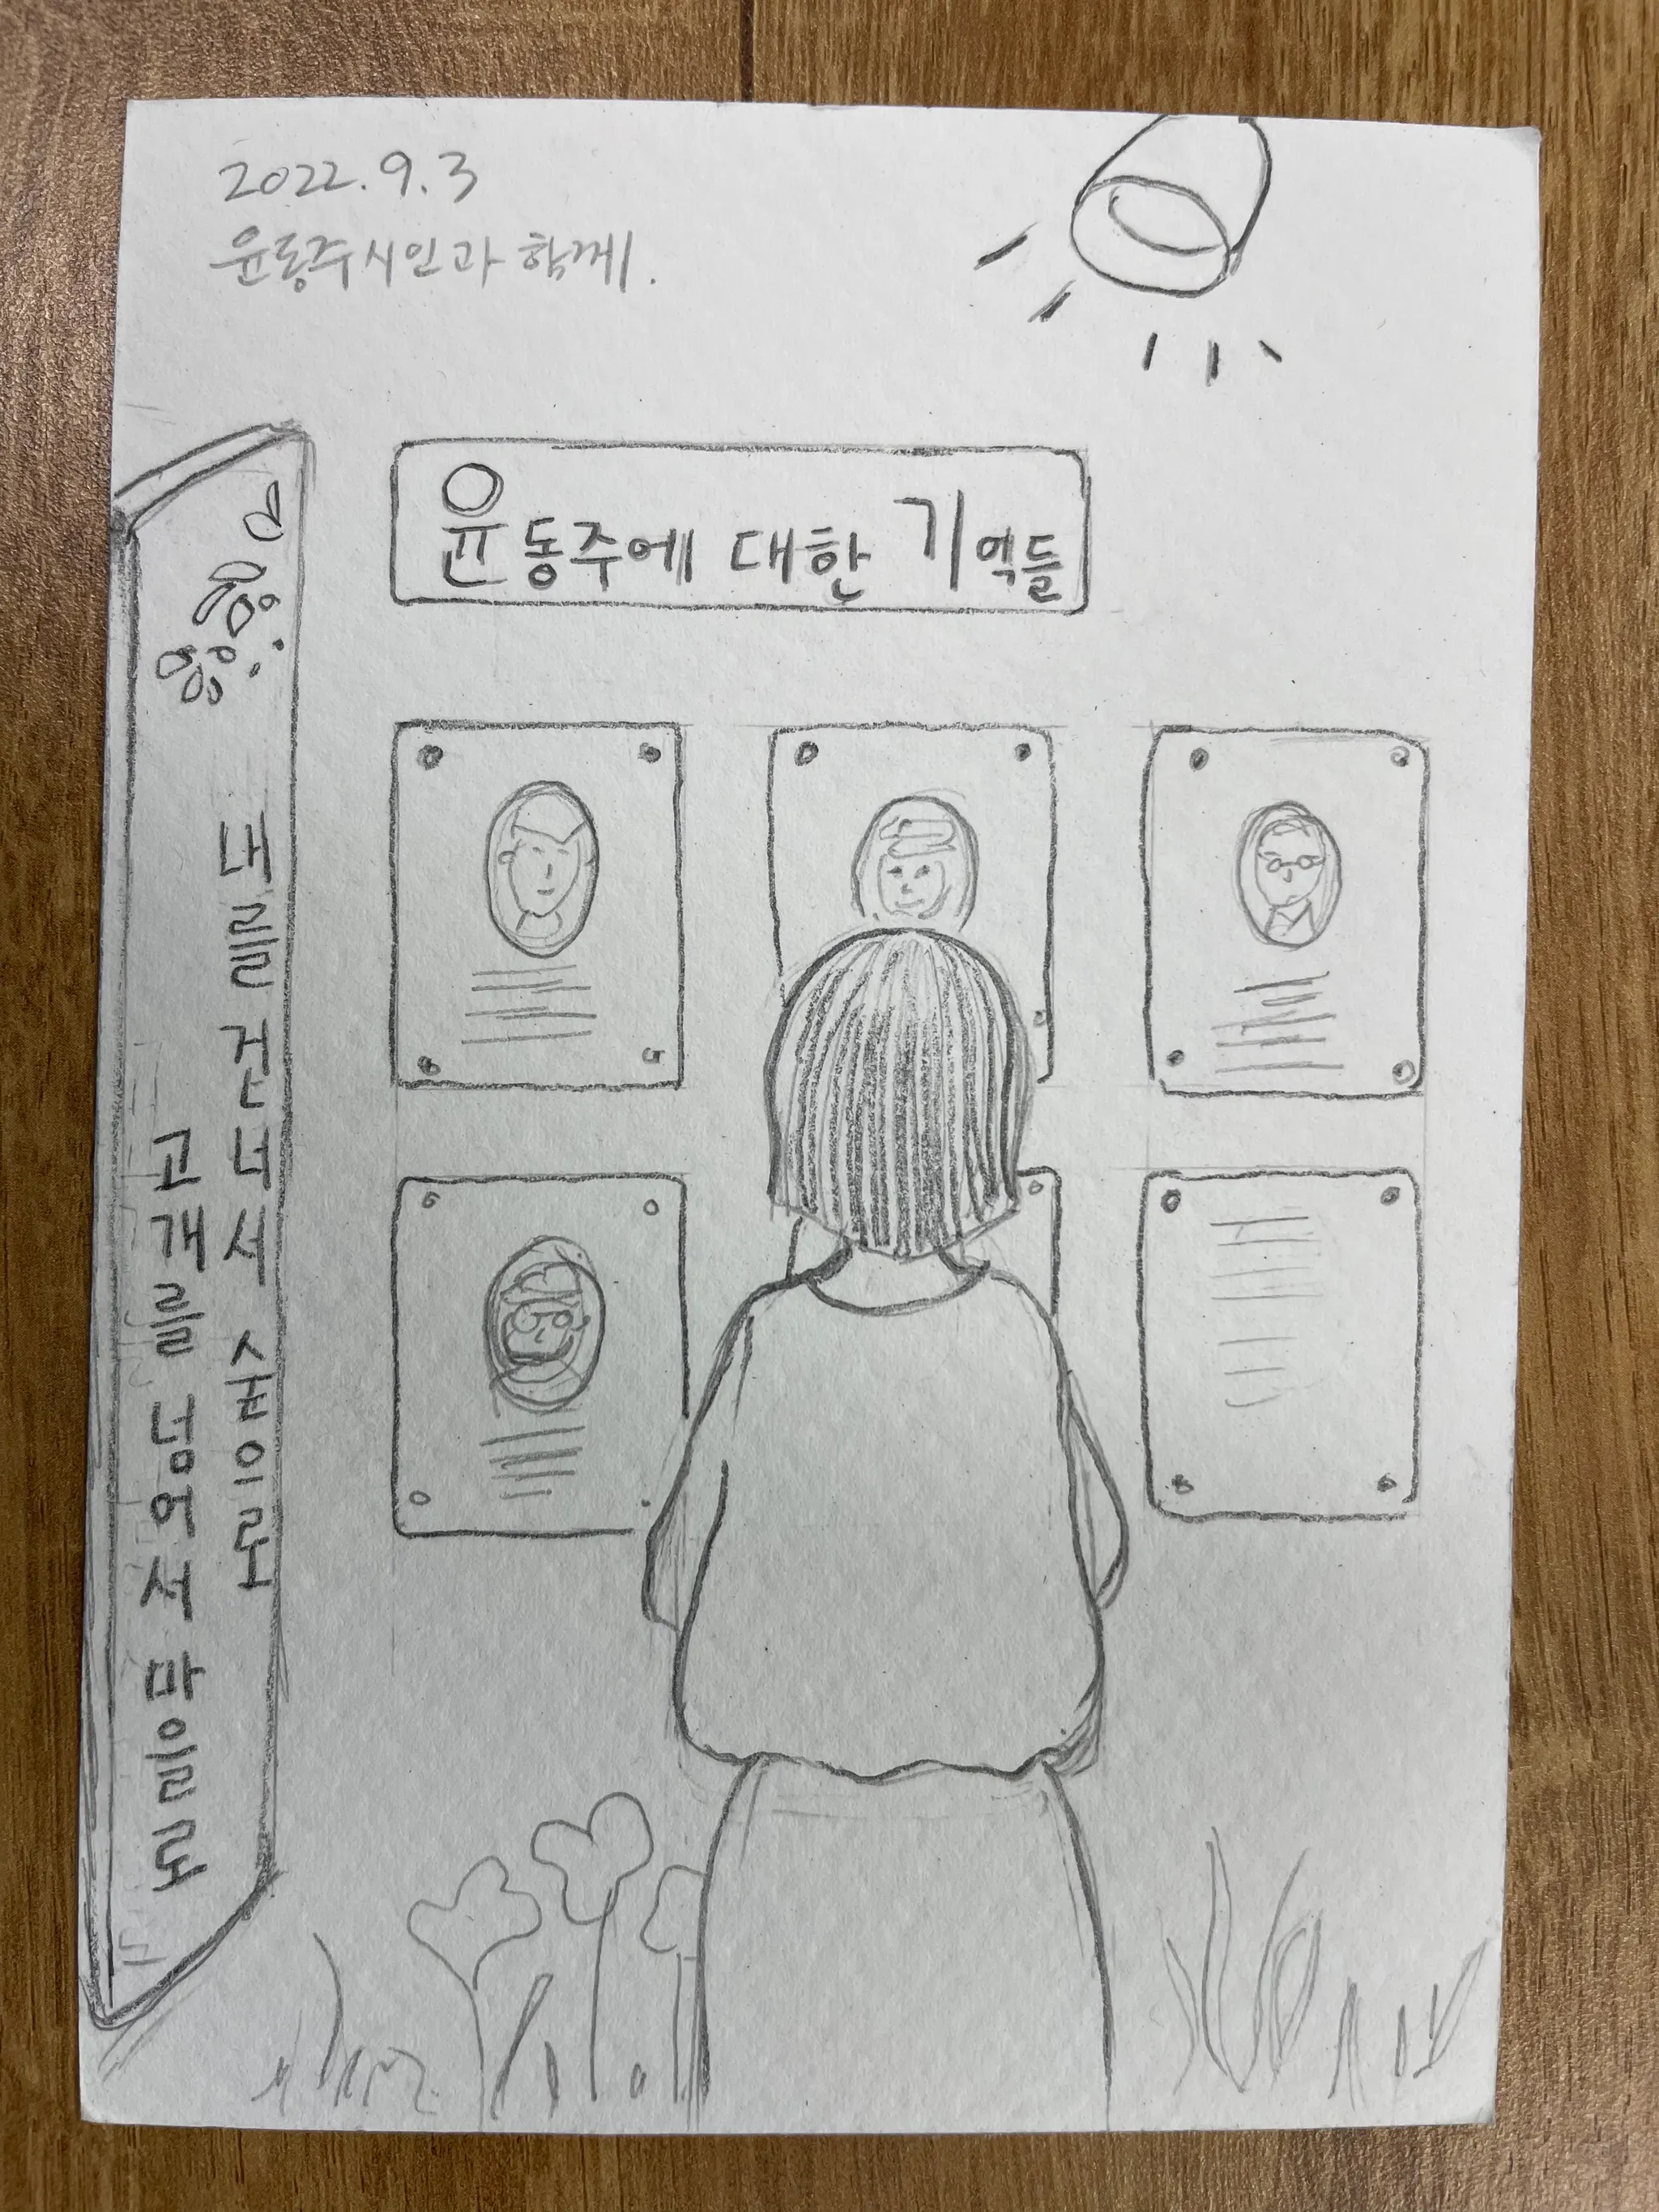 2022.9.3
윤동주시인과 함께.
윤동주에 대한 기억들
내를 건너서 숲으로
고개를 넘어서 마을로